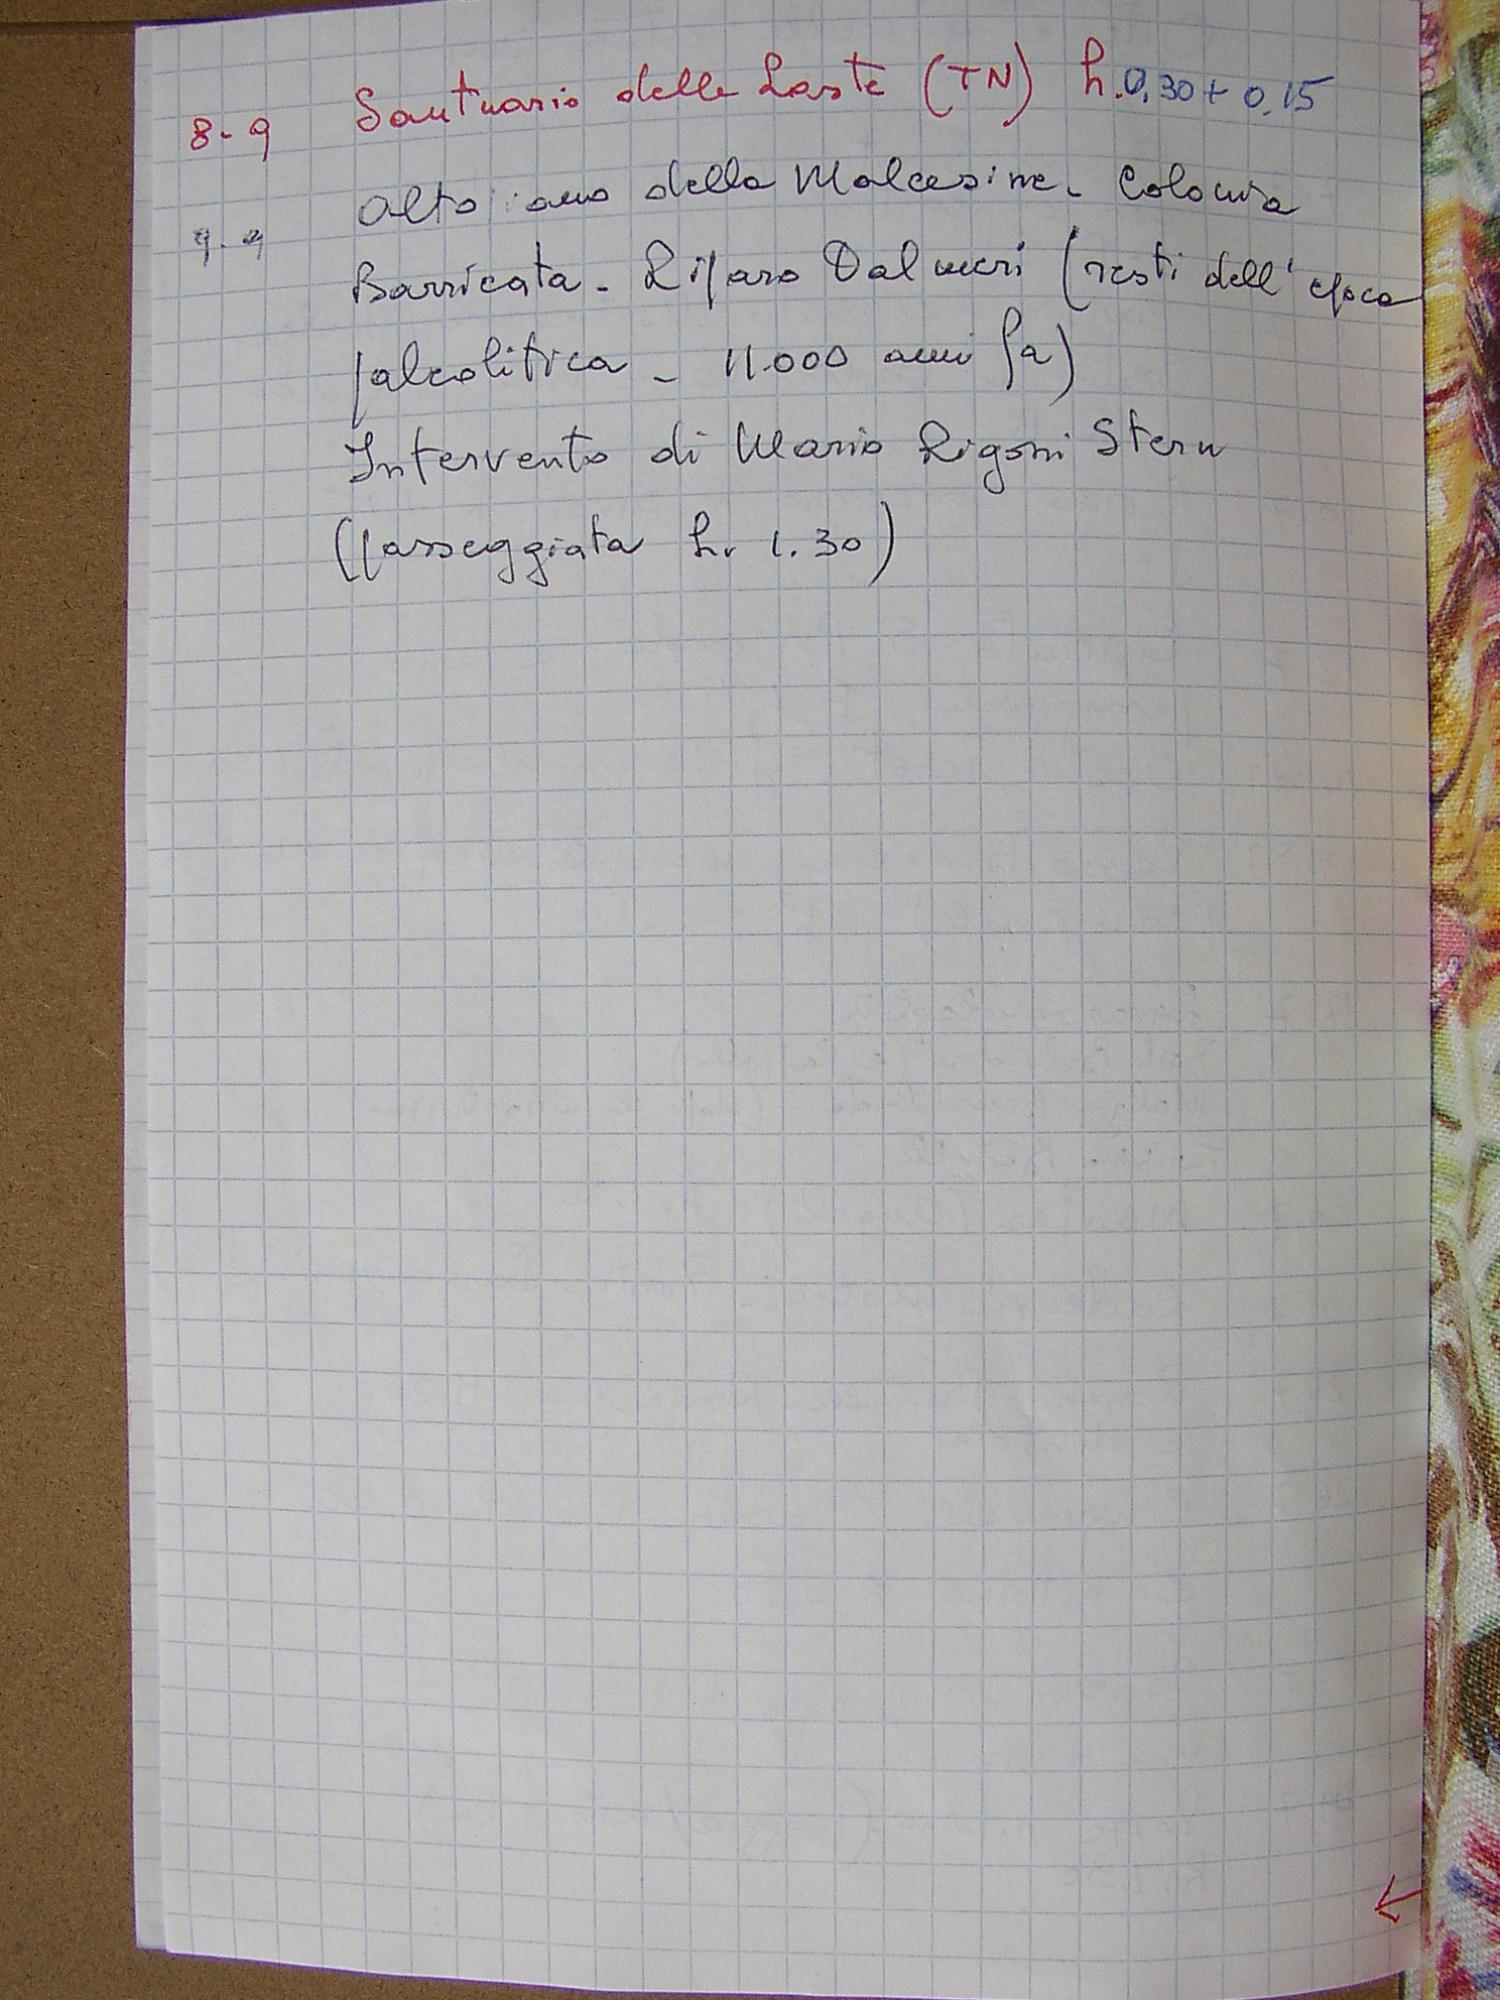 8-9 Santuario delle Laste (TN) h. 0,30 + 0,15
9-9 Altopiano della Malcesine - Colonia
Barricata - Riparo Dalmeri (resti dell'epoca
paleolitica - 11.000 anni fa)
Intervento di Mario Rigoni Stern
(passeggiata h. 1.30)